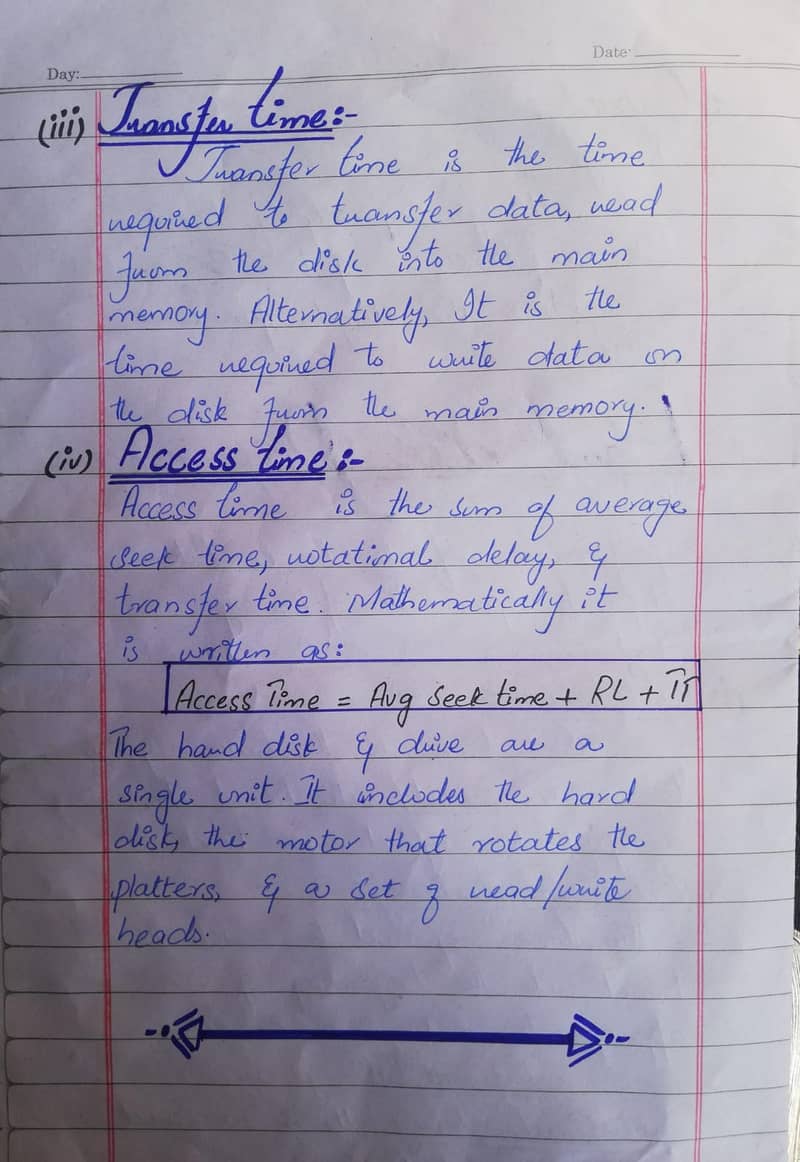 Date:
Day:
(iii) Transfer time:-
Transfer time is the time
required to transfer data, read
from the disk into the main
memory. Alternatively, It is the
time required to write data on
the disk from the main memory.
(iv) Access time:-
Access time is the sum of average
seek time, rotational delay, &
transfer time. Mathematically it
is written as:
Access Time = Avg seek time + RL + TT
The hard disk & drive are a
single unit. It includes the hard
disk, the motor that rotates the
platters, & a set of read/write
heads.